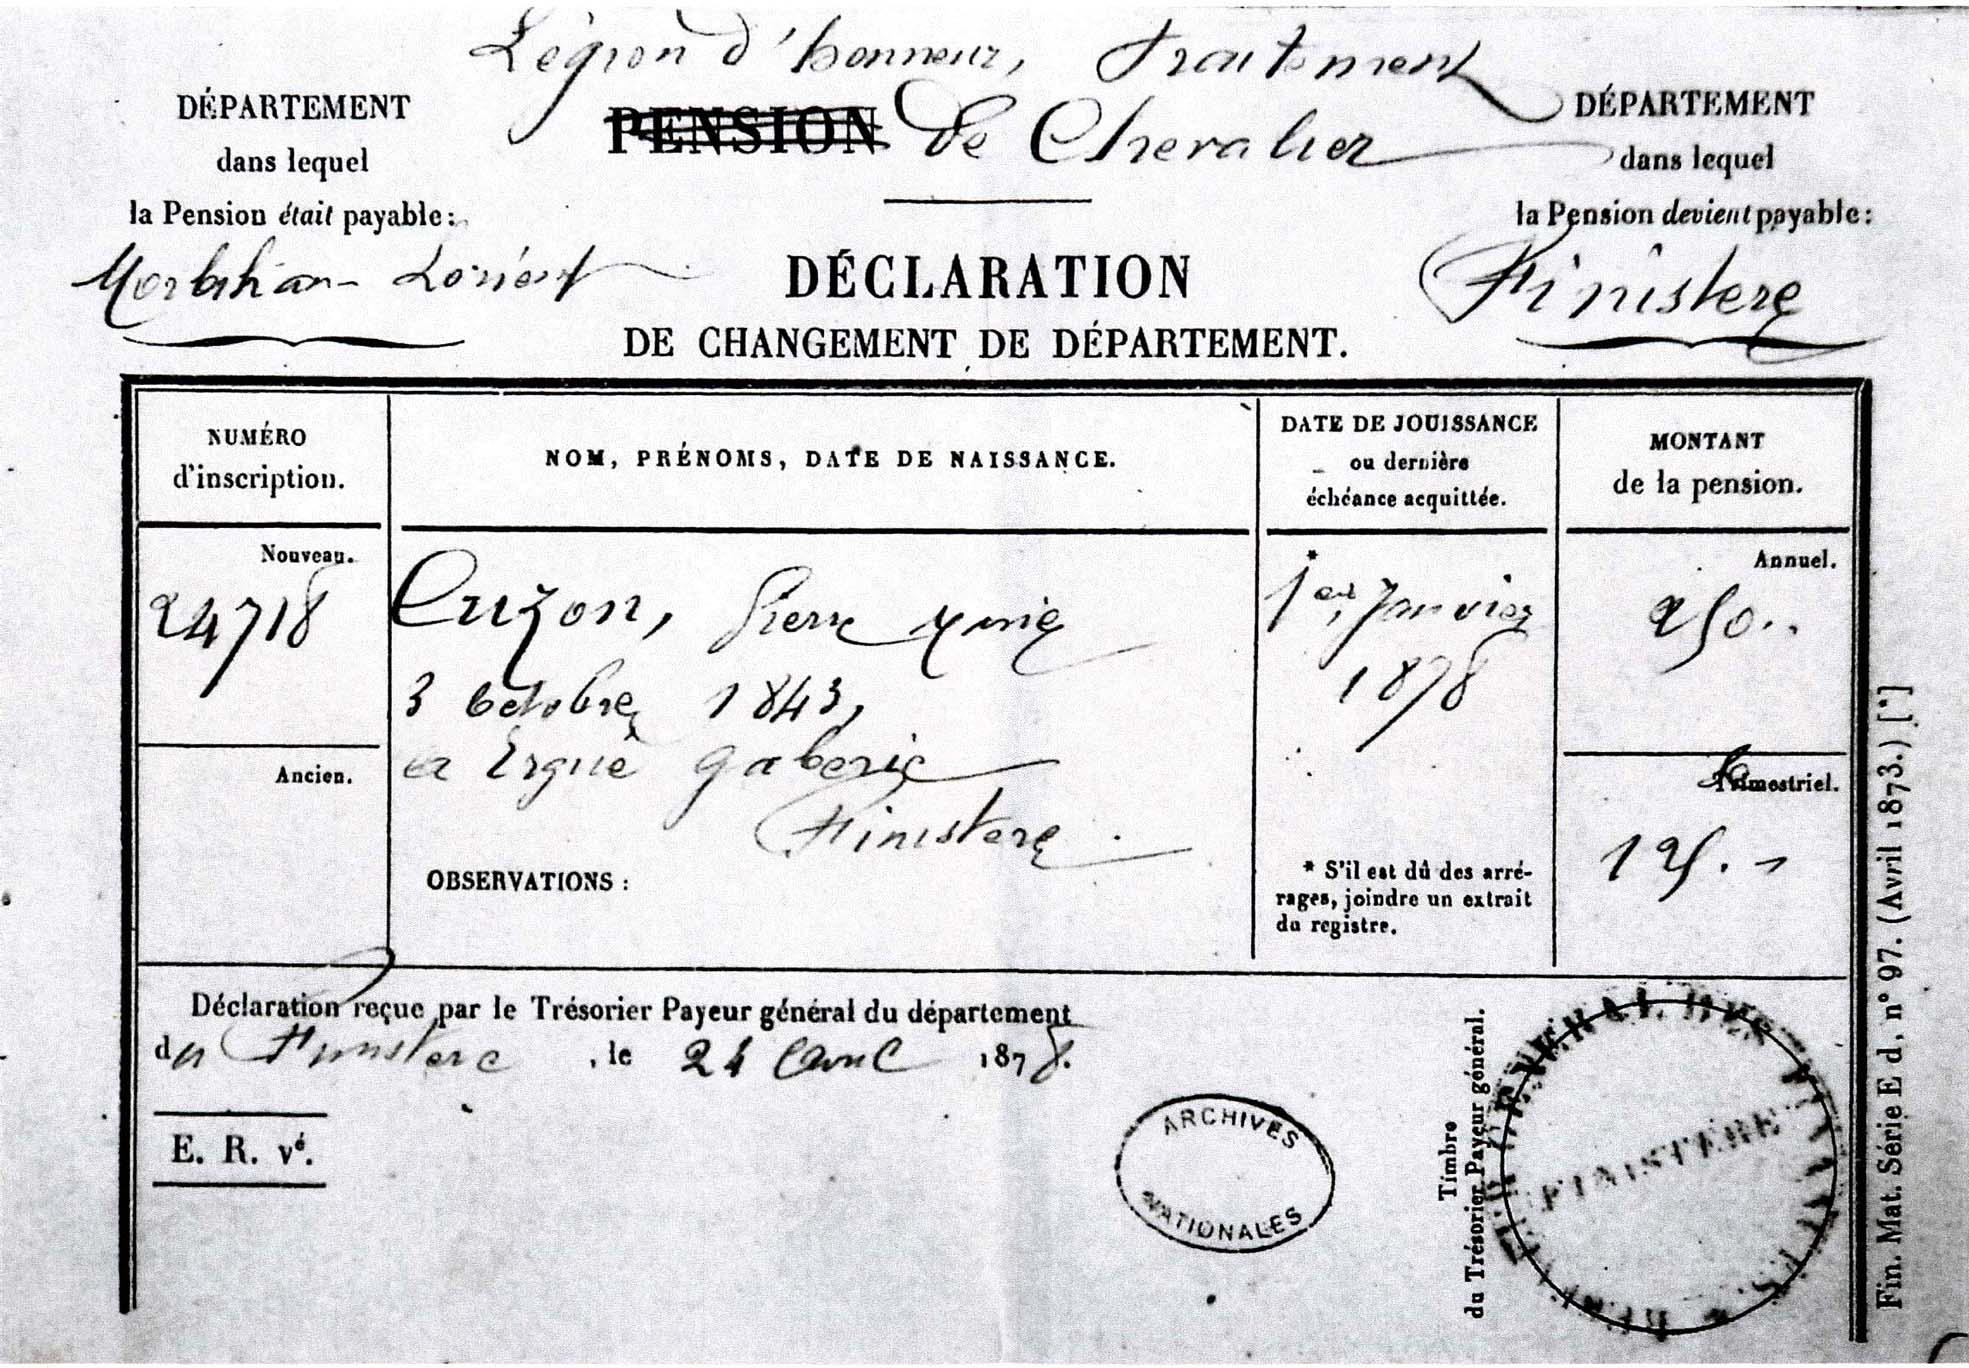 Légion d'honneur, Traitement
PENSION de Chevalier
DÉPARTEMENT
dans lequel
la Pension était payable:
Morbihan - Lorient
DÉPARTEMENT
dans lequel
la Pension devient payable:
Finistere
DÉCLARATION
DE CHANGEMENT DE DÉPARTEMENT.
NUMÉRO
d'inscription.
NOM, PRÉNOMS, DATE DE NAISSANCE.
DATE DE JOUISSANCE
ou dernière
échéance acquittée.
MONTANT
de la pension.
Nouveau.
24718
Ancien.
Cuzon, Pierre
3 octobre 1843,
à Ergué gaberic
Finistere
OBSERVATIONS :
*
1er Janvier
1878
* S'il est dû des arré-
rages, joindre un extrait
du registre.
Annuel.
250..
Trimestriel.
125. -
Déclaration reçue par le Trésorier Payeur général du département
du Finistere, le 24 avril 1878.
E. R. vé.
ARCHIVES
NATIONALES
Timbre
du Trésorier Payeur général.
FINISTÈRE
Fin. Mat. Série E d, n° 97. (Avril 1873.) [*]